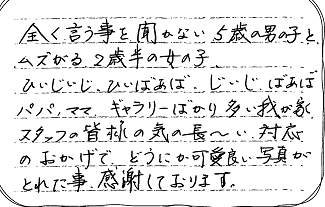 全く言う事を聞かない5歳の男の子と
ムズがる2歳半の女の子
ひいじいじ、ひいばあば、じいじ ばあば
パパ、ママ ギャラリーばかり多い我が家
スタッフの皆様の気の長〜い対応
のおかげで、どうにか可愛良い写真が
とれた事 感謝しております。